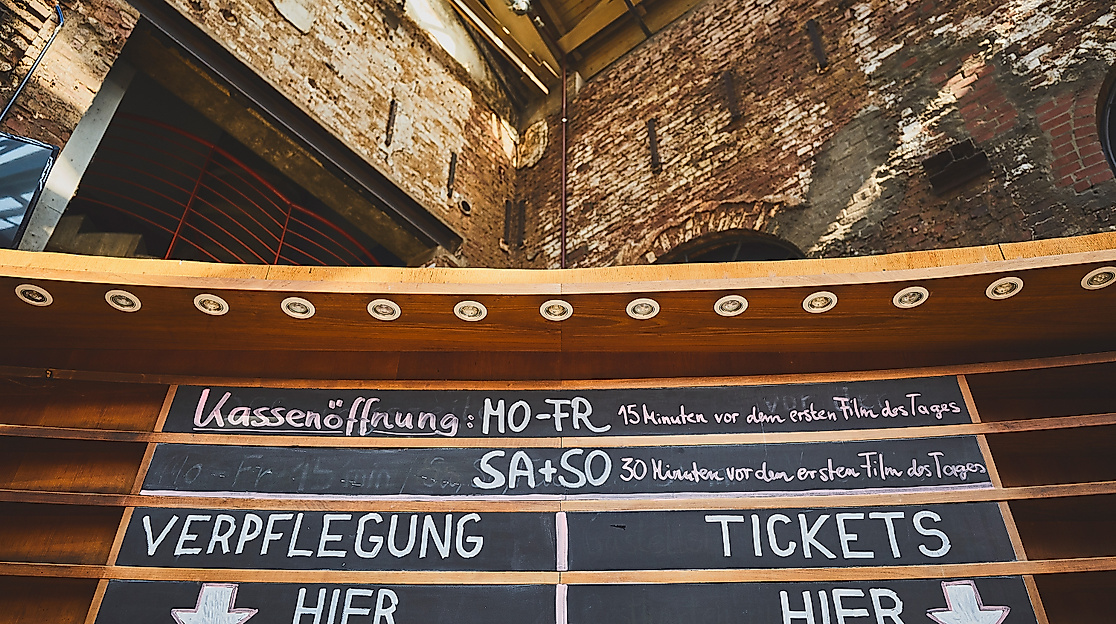 Kassenöffnung: MO-FR 15 Minuten vor dem ersten Film des Tages
SA+SO 30 Minuten vor dem ersten Film des Tages
VERPFLEGUNG TICKETS
HIER HIER